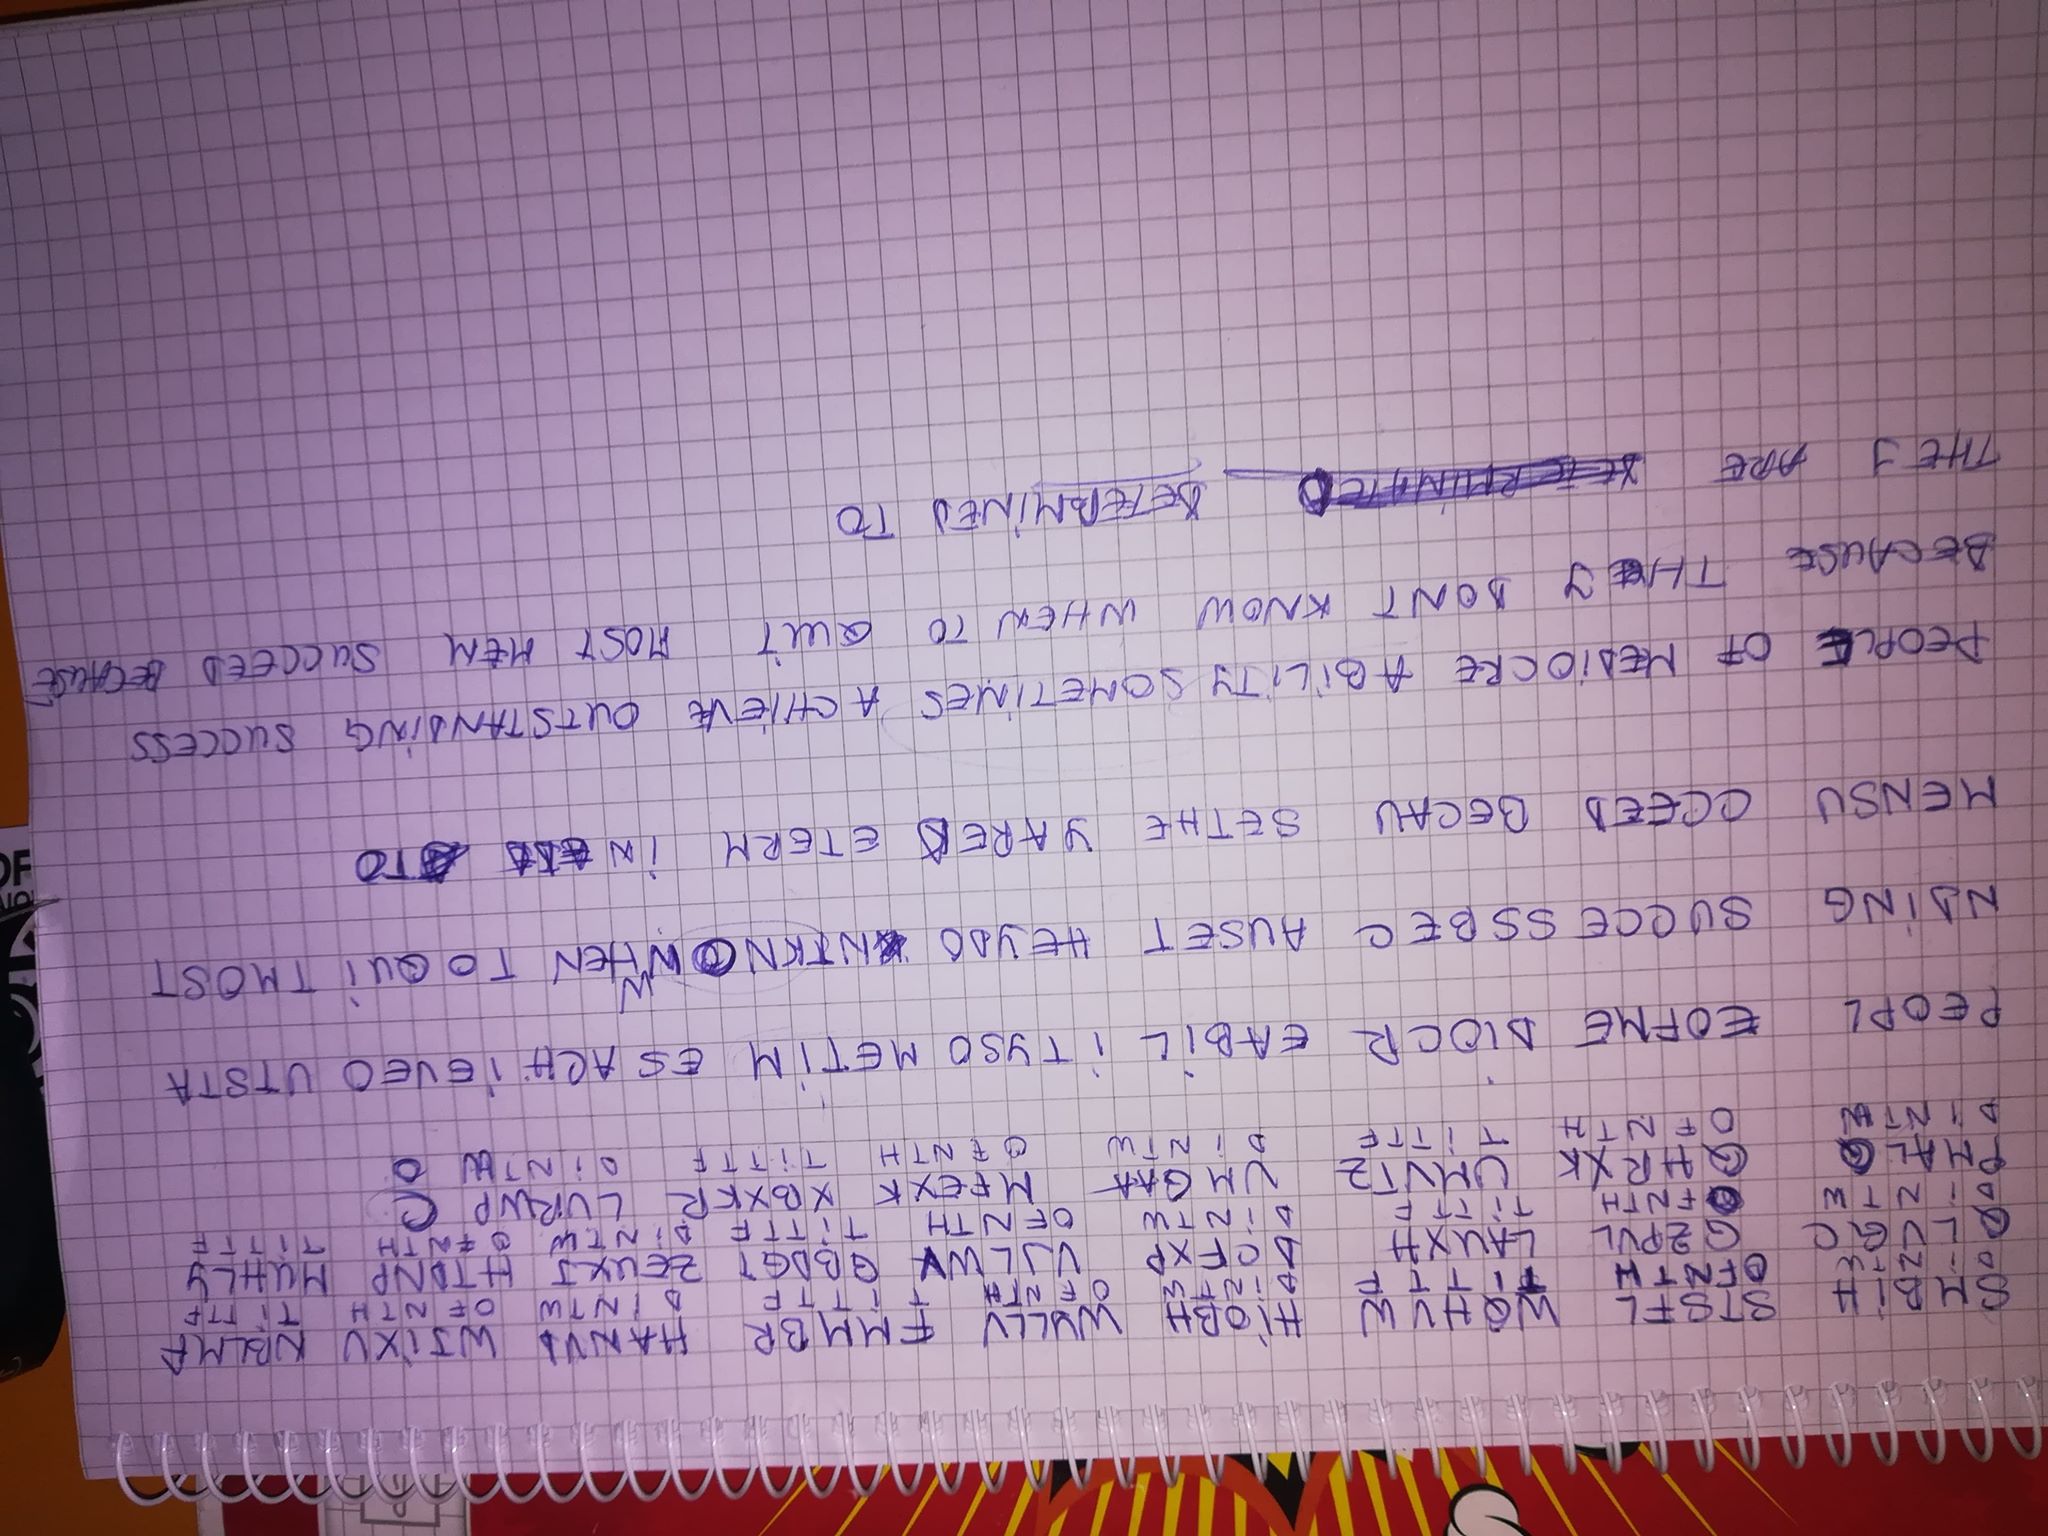 SMBIH STSFL WQHVW HIOBH WYLLV FMMBR HANVD WJIXV NBLMF
DINTW OFNTH TITTF DINTW OFNTH TITTF DINTW OFNTH TITTF
QLVGC GZPVL LAUXH DCFXP VJLWV GBDGT ZEUXJ HTDNP MUHLY
DINTW OFNTH TITTF DINTW OFNTH TITTF DINTW OFNTH TITTF
PMALQ QHRXK UMVTZ VMGAA MFEXK XBXKR LVRWP C
DINTW OFNTH TITTF DINTW OFNTH TITTF DINTW O
PEOPL EOFME DIOCR EABIL ITYSO METIM ESACH IEVEO UTSTA
NDING SUCCE SSBEC AUSET HEYDO NTKNOW WHEN TOQUI TMOST
MENSU CCEED BECAU SETHE YARED ETERM IN TO
PEOPLE OF MEDIOCRE ABILITY SOMETIMES ACHIEVE OUTSTANDING SUCCESS
BECAUSE THEY DONT KNOW WHEN TO QUIT MOST MEM SUCCEED BECAUSE
THEY ARE DETERMINATED DETERMINED TO